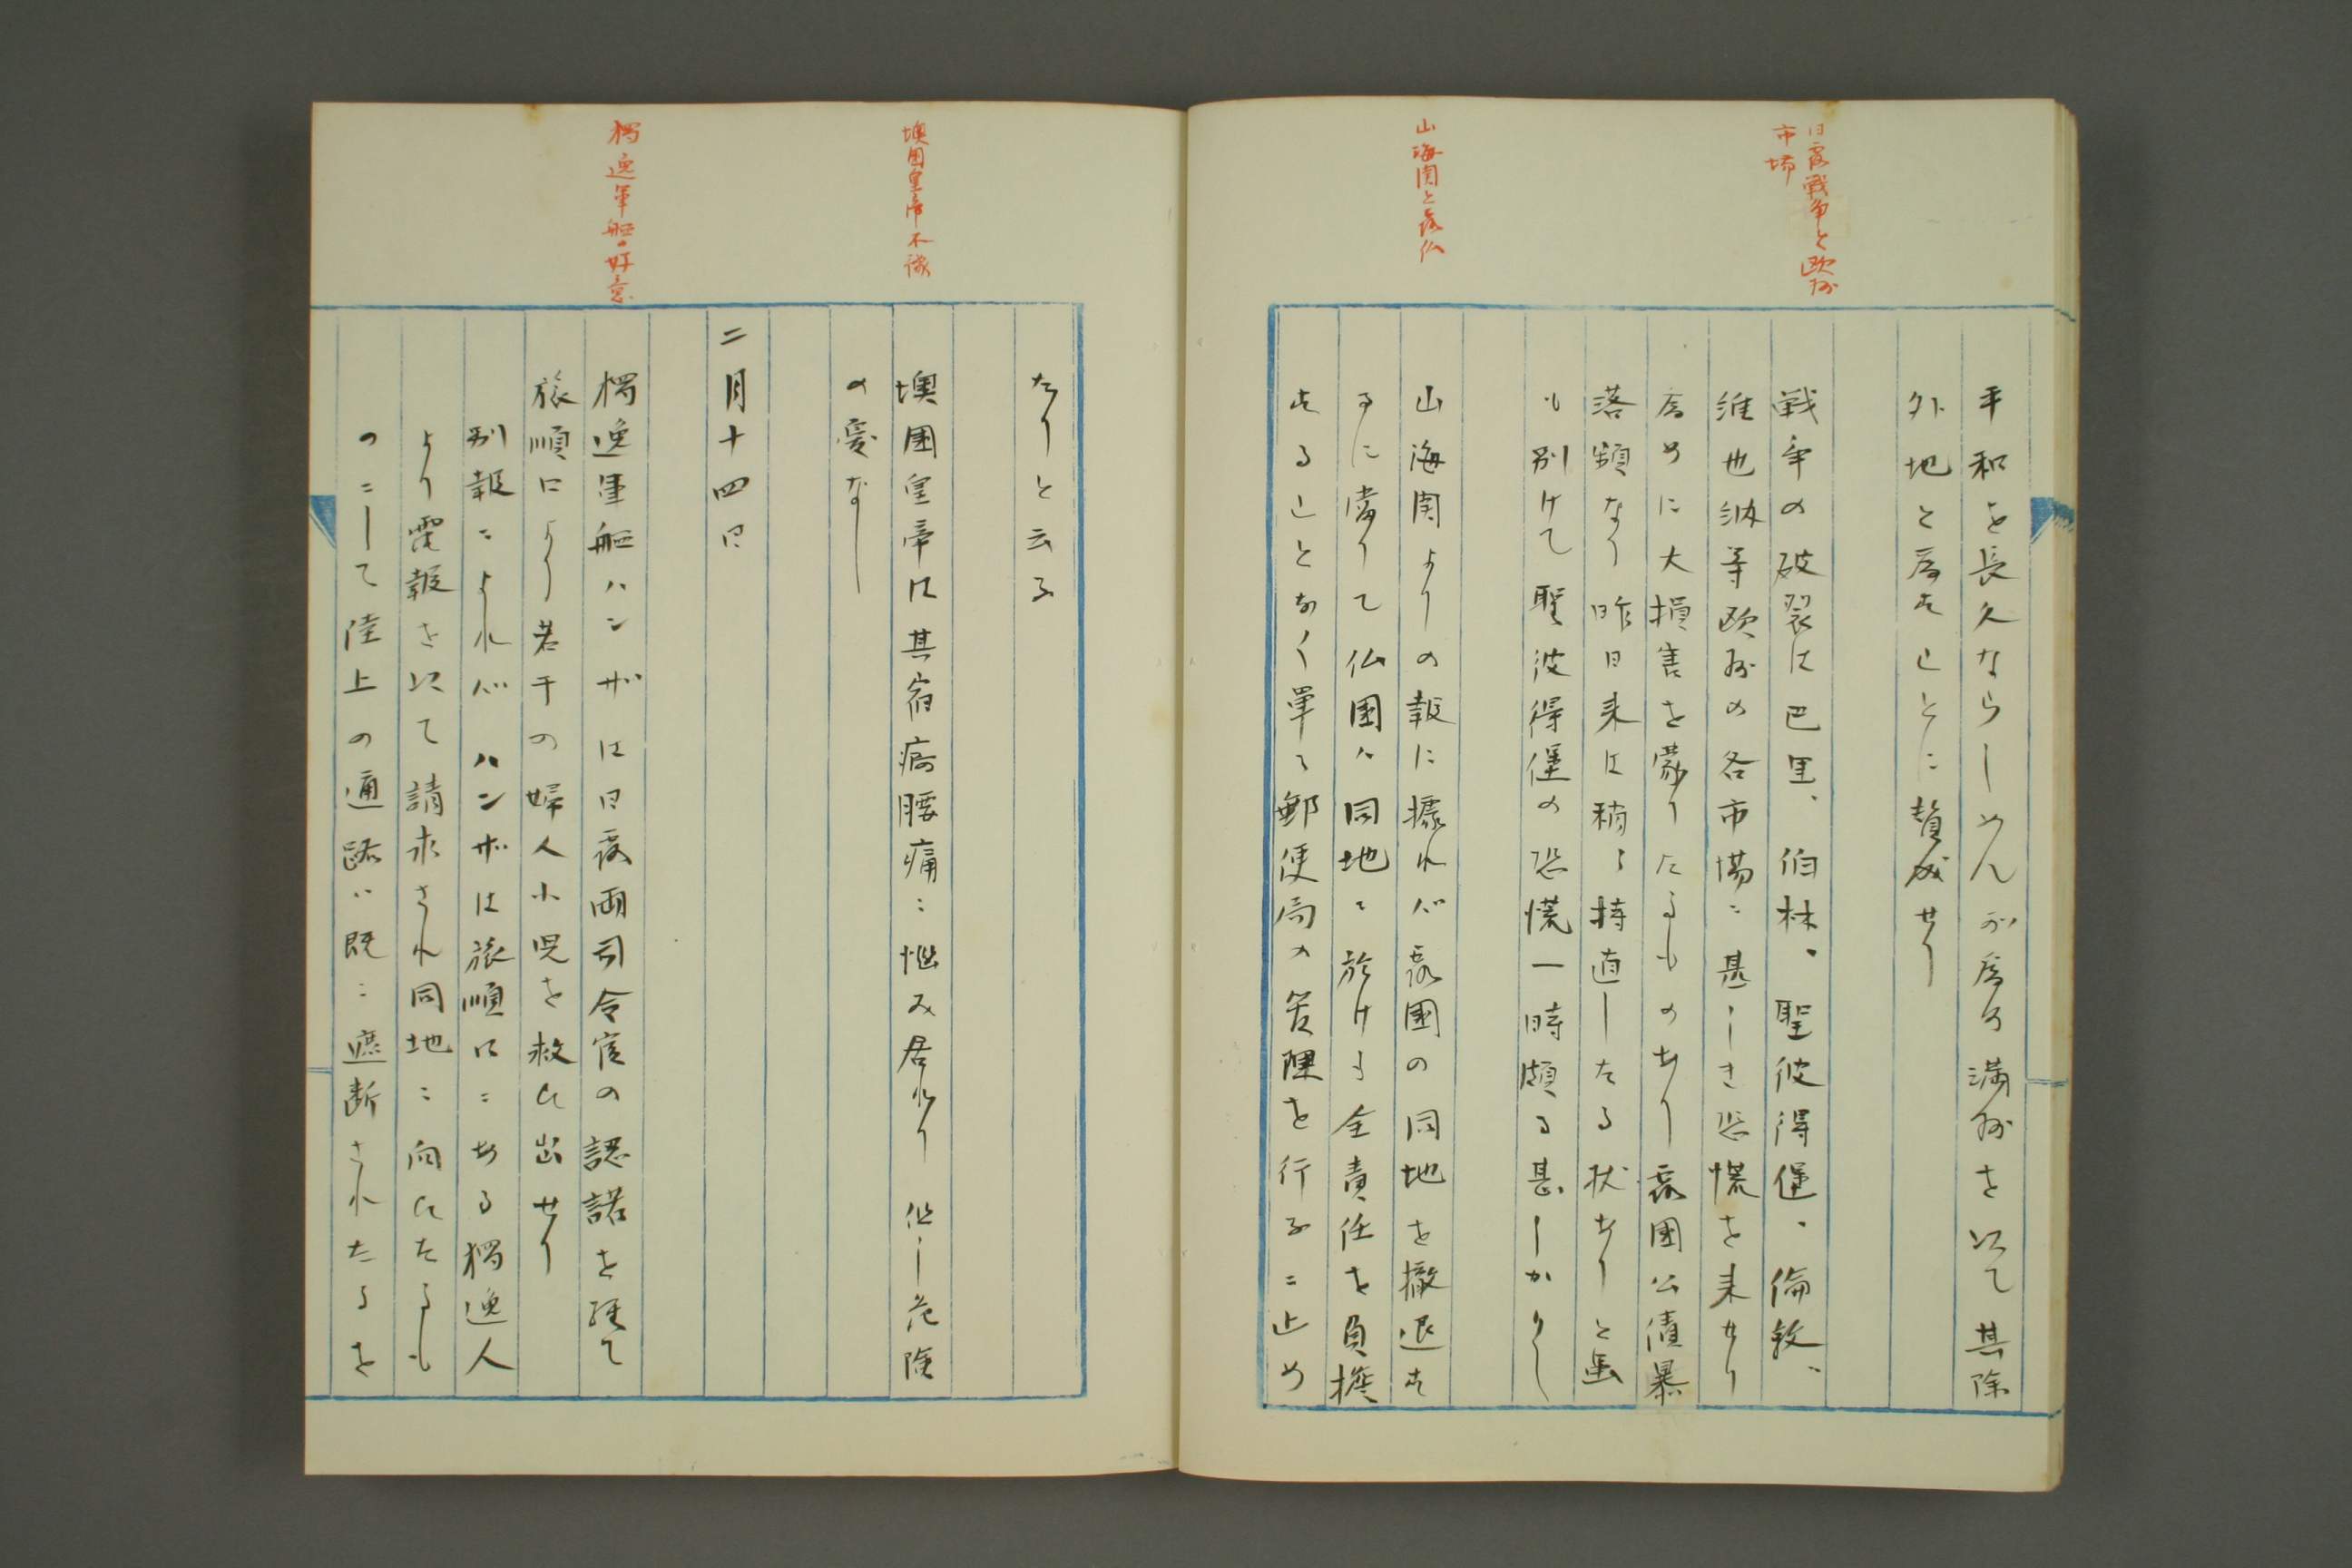 日露戦争と欧州
市場
山海関と露仏
平和を長久ならしめんが為め満州を以て其除
外地と為すことに賛成せり
戦争の破裂は巴里、伯林、聖彼得堡、倫敦、
維也納等欧州の各市場ニ甚しき恐慌を来せり
為めに大損害を蒙りたるものあり露国公債暴
落頻なり昨日来は稍々持直したる状ありと虽
も別けて聖彼得堡の恐慌一時頗る甚しかりし
山海関よりの報に據れバ露国の同地を撤退す
るに當りて仏国ハ同地ニ於ける全責任を負擔
することなく単に郵便局の管理を行ふニ止め
墺国皇帝不豫
独逸軍艦の好意
たりと云ふ
墺国皇帝は其宿痾腰痛ニ悩み居れり 但し危険
の憂なし
二月十四日
独逸軍艦ハンザは日露両司令官の認諾を経て
旅順口より若干の婦人小児を救ひ出せり
別報ニよれバ ハンザは旅順口ニある独逸人
より電報を以て請求され同地ニ向ひたるも
のニして陸上の通路ハ既ニ遮断されたるを